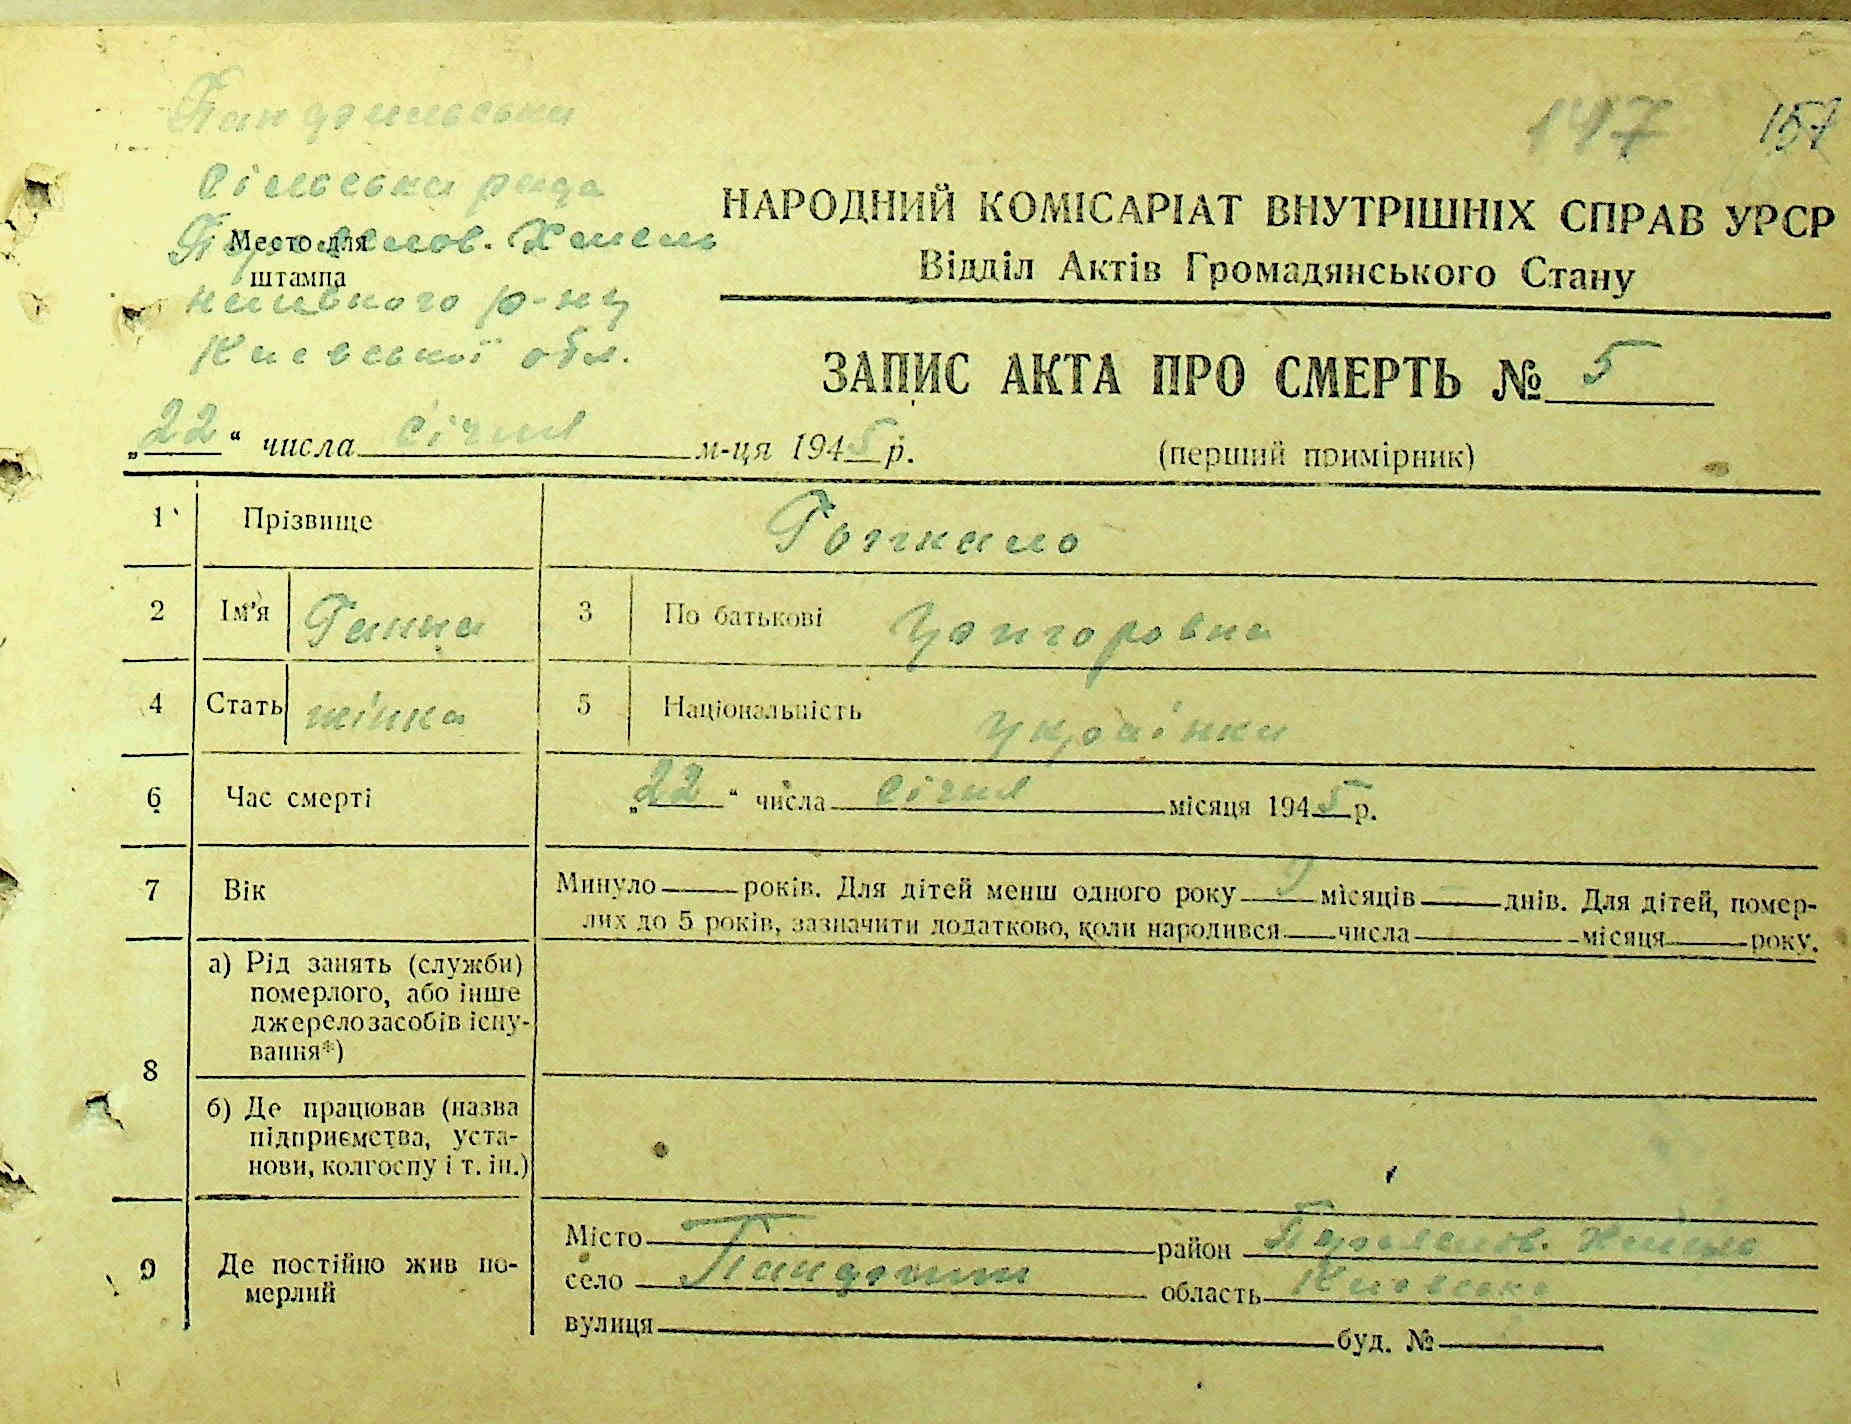 147 157
сільська рада
НАРОДНИЙ КОМІСАРІАТ ВНУТРІШНІХ СПРАВ УРСР
Место для
штампа
Відділ Актів Громадянського Стану
р-ну
Київської обл.
ЗАПИС АКТА ПРО СМЕРТЬ № 5
„22“ числа січня м-ця 1945 р.
(перший примірник)
1 Прізвище
2 Ім'я Ганна 3 По батькові
4 Стать жінка 5 Національність українка
6 Час смерті „22“ числа січня місяця 1945 р.
7 Вік Минуло років. Для дітей менш одного року 9 місяців днів. Для дітей, помер-
лих до 5 років, зазначити додатково, коли народився числа місяця року.
8
а) Рід занять (служби)
померлого, або інше
джерело засобів існу-
вання*)
б) Де працював (назва
підприємства, уста-
нови, колгоспу і т. ін.)
9 Де постійно жив по-
мерлий
Місто район
село область Київська
вулиця буд. №